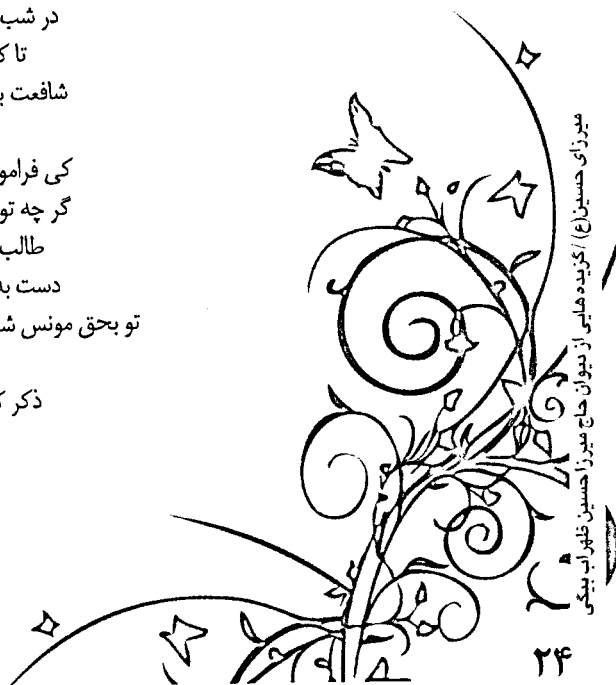 در شب
تا ک
شافعت ب
کی فرامو
گر چه تو
طالب
دست به
تو بحق مونس ش
ذکر ک
میرزای حسین(ع) / گزیده هایی از دیوان حاج میرزا حسین ظهراب بیگی
۲۴